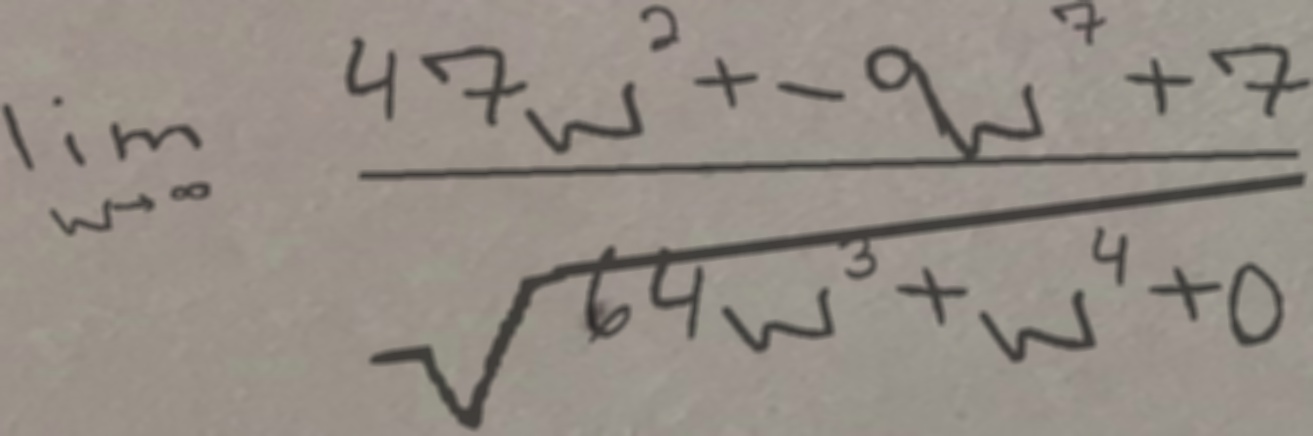 \lim_{w \to \infty} \frac{47w^2 + -9w^7 + 7}{\sqrt{64w^3 + w^4 + 0}}